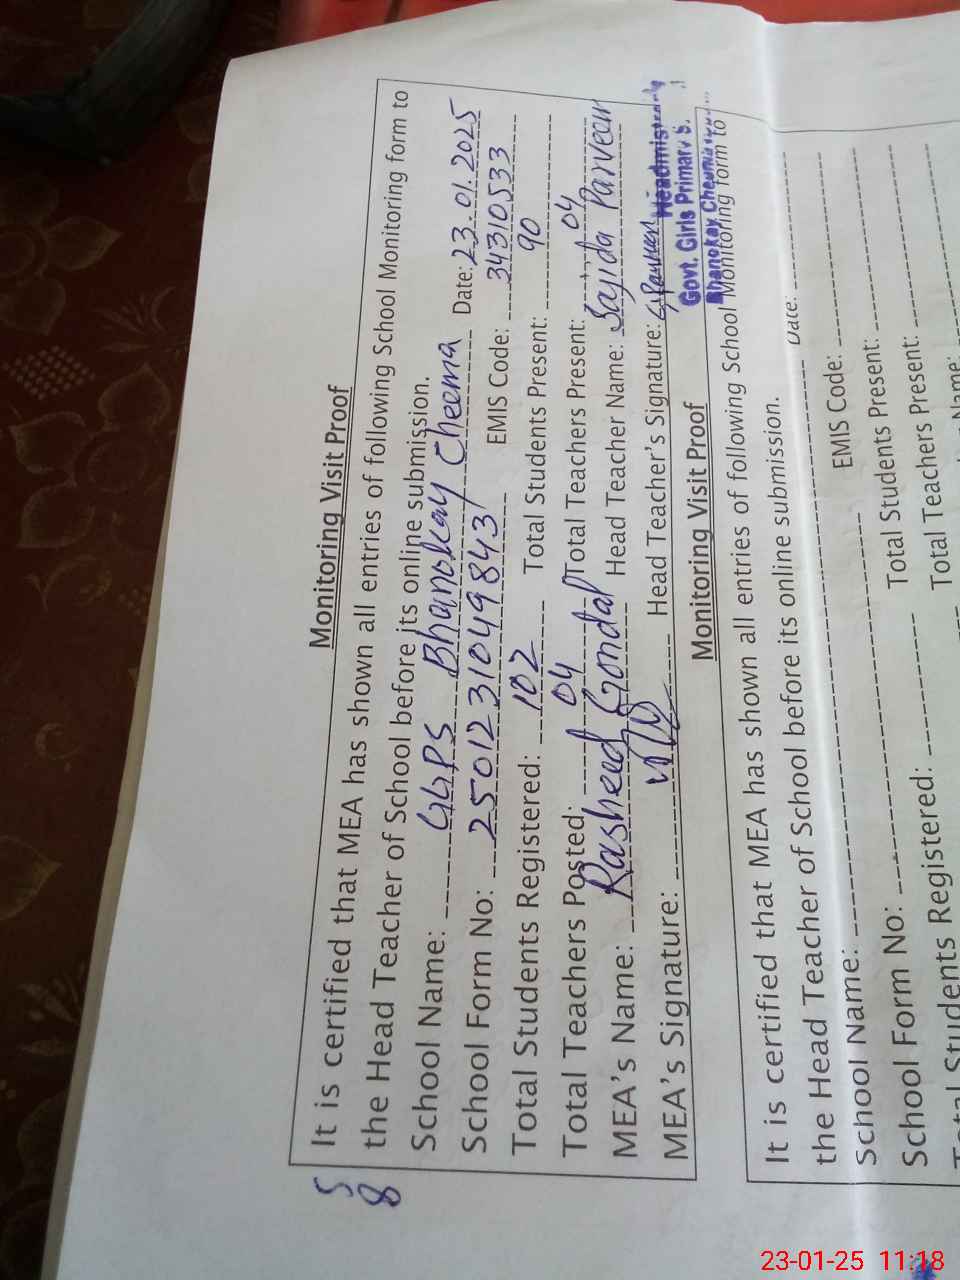 5
8
Monitoring Visit Proof
It is certified that MEA has shown all entries of following School Monitoring form to
the Head Teacher of School before its online submission.
School Name: GGPS Bhanokay Cheema Date: 23.01.2025
School Form No: 2501231049843 EMIS Code: 34310533
Total Students Registered: 102 Total Students Present: 90
Total Teachers Posted: 04 Total Teachers Present: 04
MEA's Name: Rasheed Gondal Head Teacher Name: Sajida Parveen
MEA's Signature: Head Teacher's Signature: SParveen
Headmistress
Govt. Girls Primary S.
Bhanokay Cheema
Monitoring Visit Proof
It is certified that MEA has shown all entries of following School Monitoring form to
the Head Teacher of School before its online submission.
School Name: Date:
School Form No: EMIS Code:
Total Students Registered: Total Students Present:
Total Teachers Present:
Name:
23-01-25 11:18